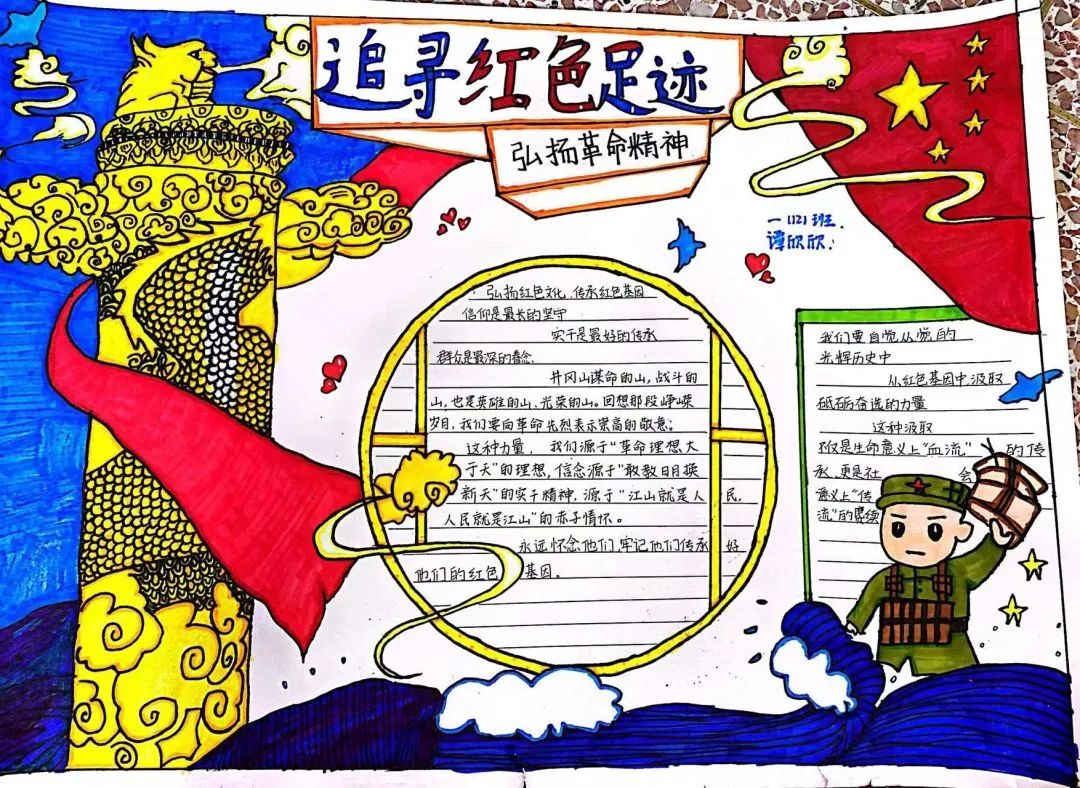 追寻红色足迹
弘扬革命精神
一1121班.
谭欣欣.
弘扬红色文化、传承红色基因
信仰是最长的坚守
实干是最好的传承
群众是最深的
井冈山谋命的山，战斗的
山，也是英雄的山、光荣的山。回想那段峥嵘
岁月，我们要向革命先烈表示崇高的敬意。
这种力量，我们源于“革命理想大
于天”的理想，信念源于“敢教日月换
新天”的实干精神，源于“江山就是人民，
人民就是江山”的赤子情怀。
永远怀念他们，牢记他们传承好
他们的红色基因。
我们要自觉从党的
光辉历史中
从红色基因中汲取
砥砺奋进的力量
这种汲取
不仅是生命意义上“血流”的传
承、更是社会
意义上“传
流”的赓续